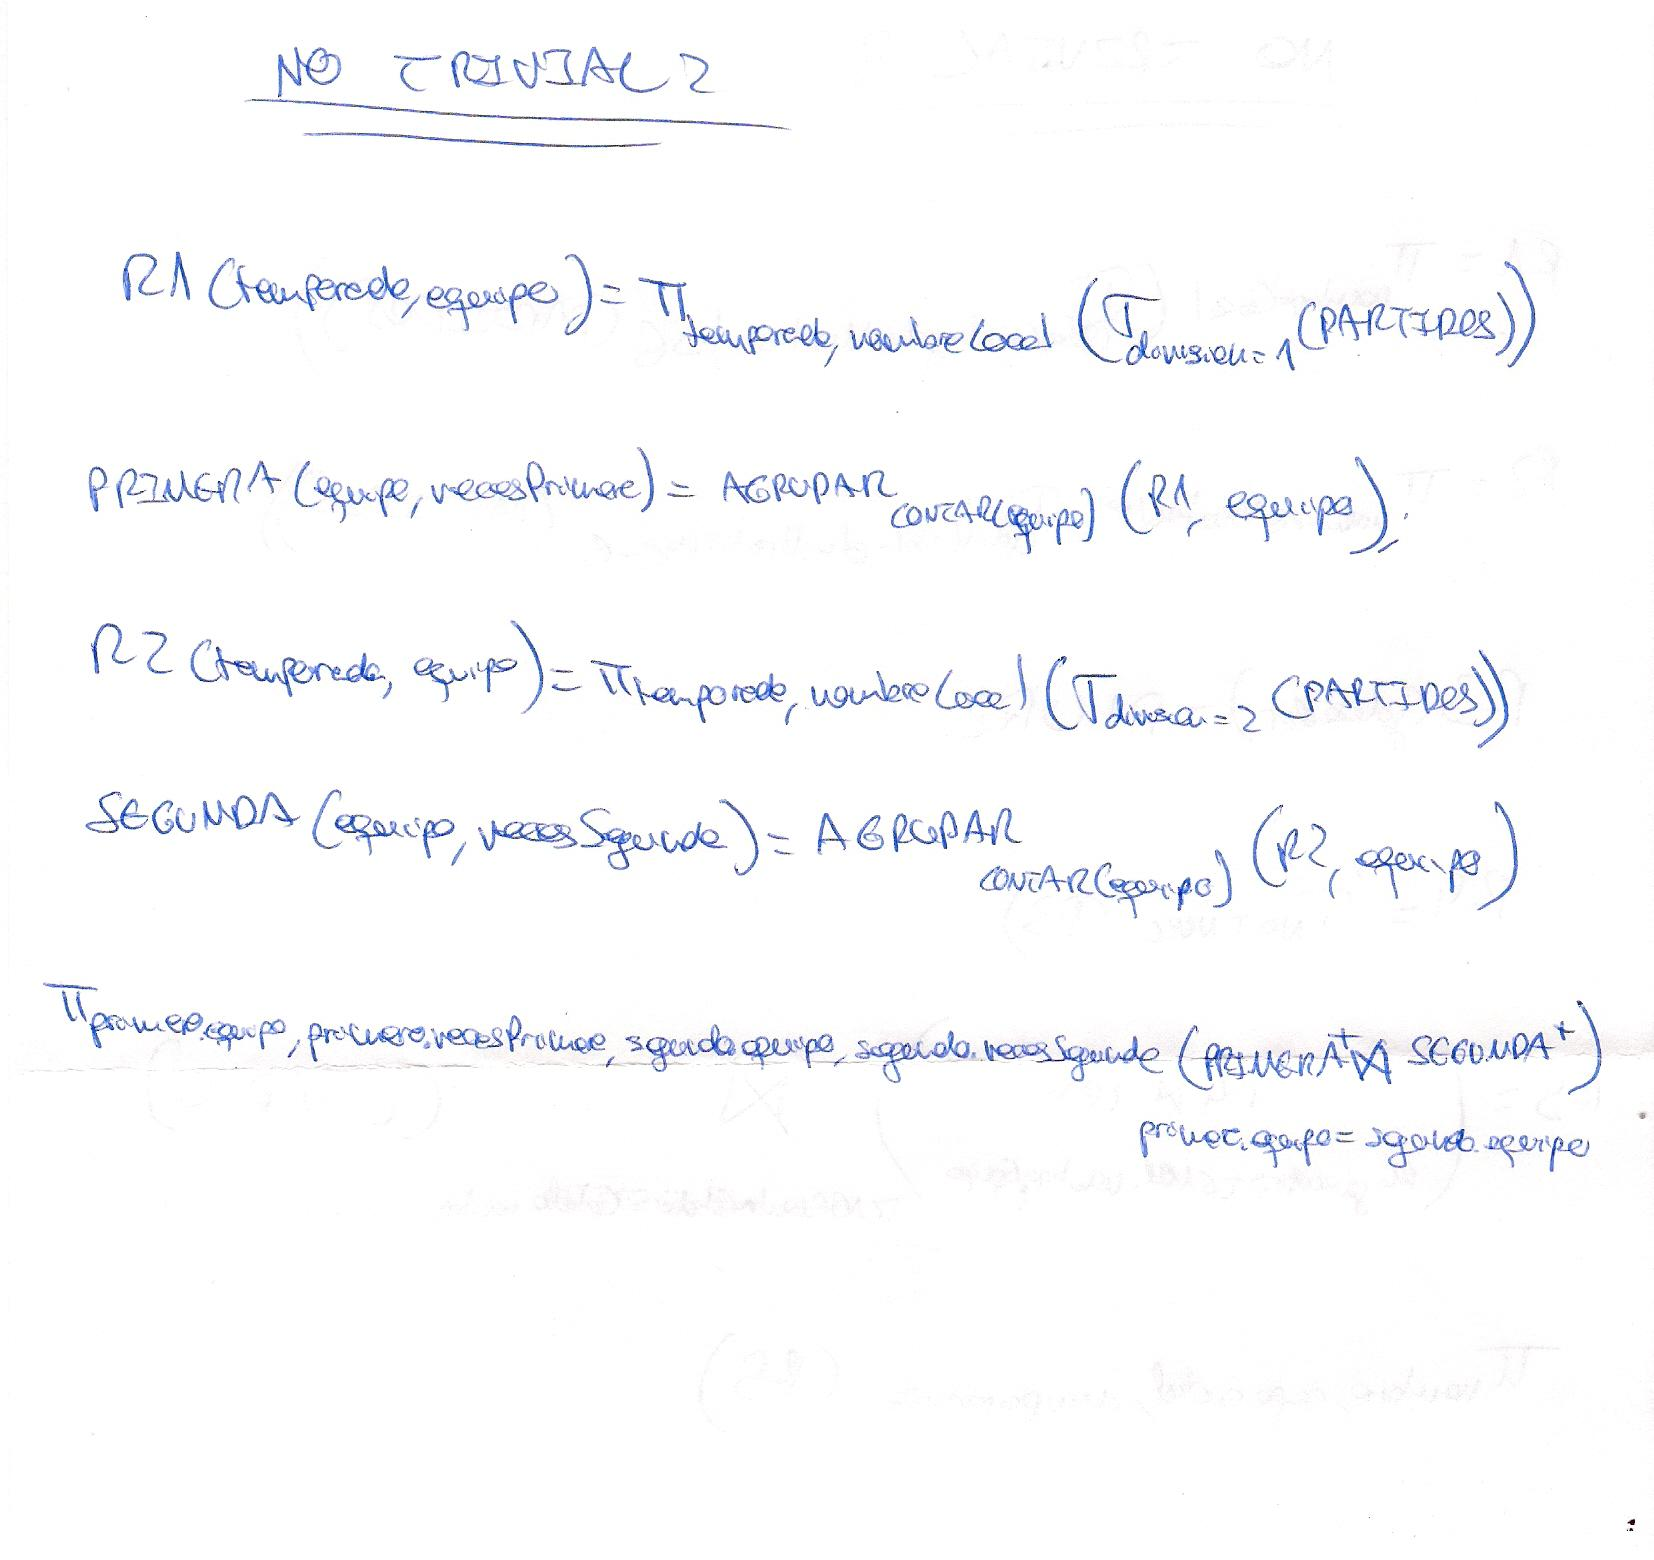 NO TRIVIAL 2
R1 (temporada, equipo) = π temporada, nombreLocal (σ division = 1 (PARTIDOS))
PRIMERA (equipo, vecesPrimera) = AGRUPAR CONTAR(equipo) (R1, equipo)
R2 (temporada, equipo) = π temporada, nombreLocal (σ division = 2 (PARTIDOS))
SEGUNDA (equipo, vecesSegunda) = AGRUPAR CONTAR(equipo) (R2, equipo)
π primera.equipo, primera.vecesPrimera, segunda.equipo, segunda.vecesSegunda (PRIMERA+ ⋈ SEGUNDA+)
primera.equipo = segunda.equipo